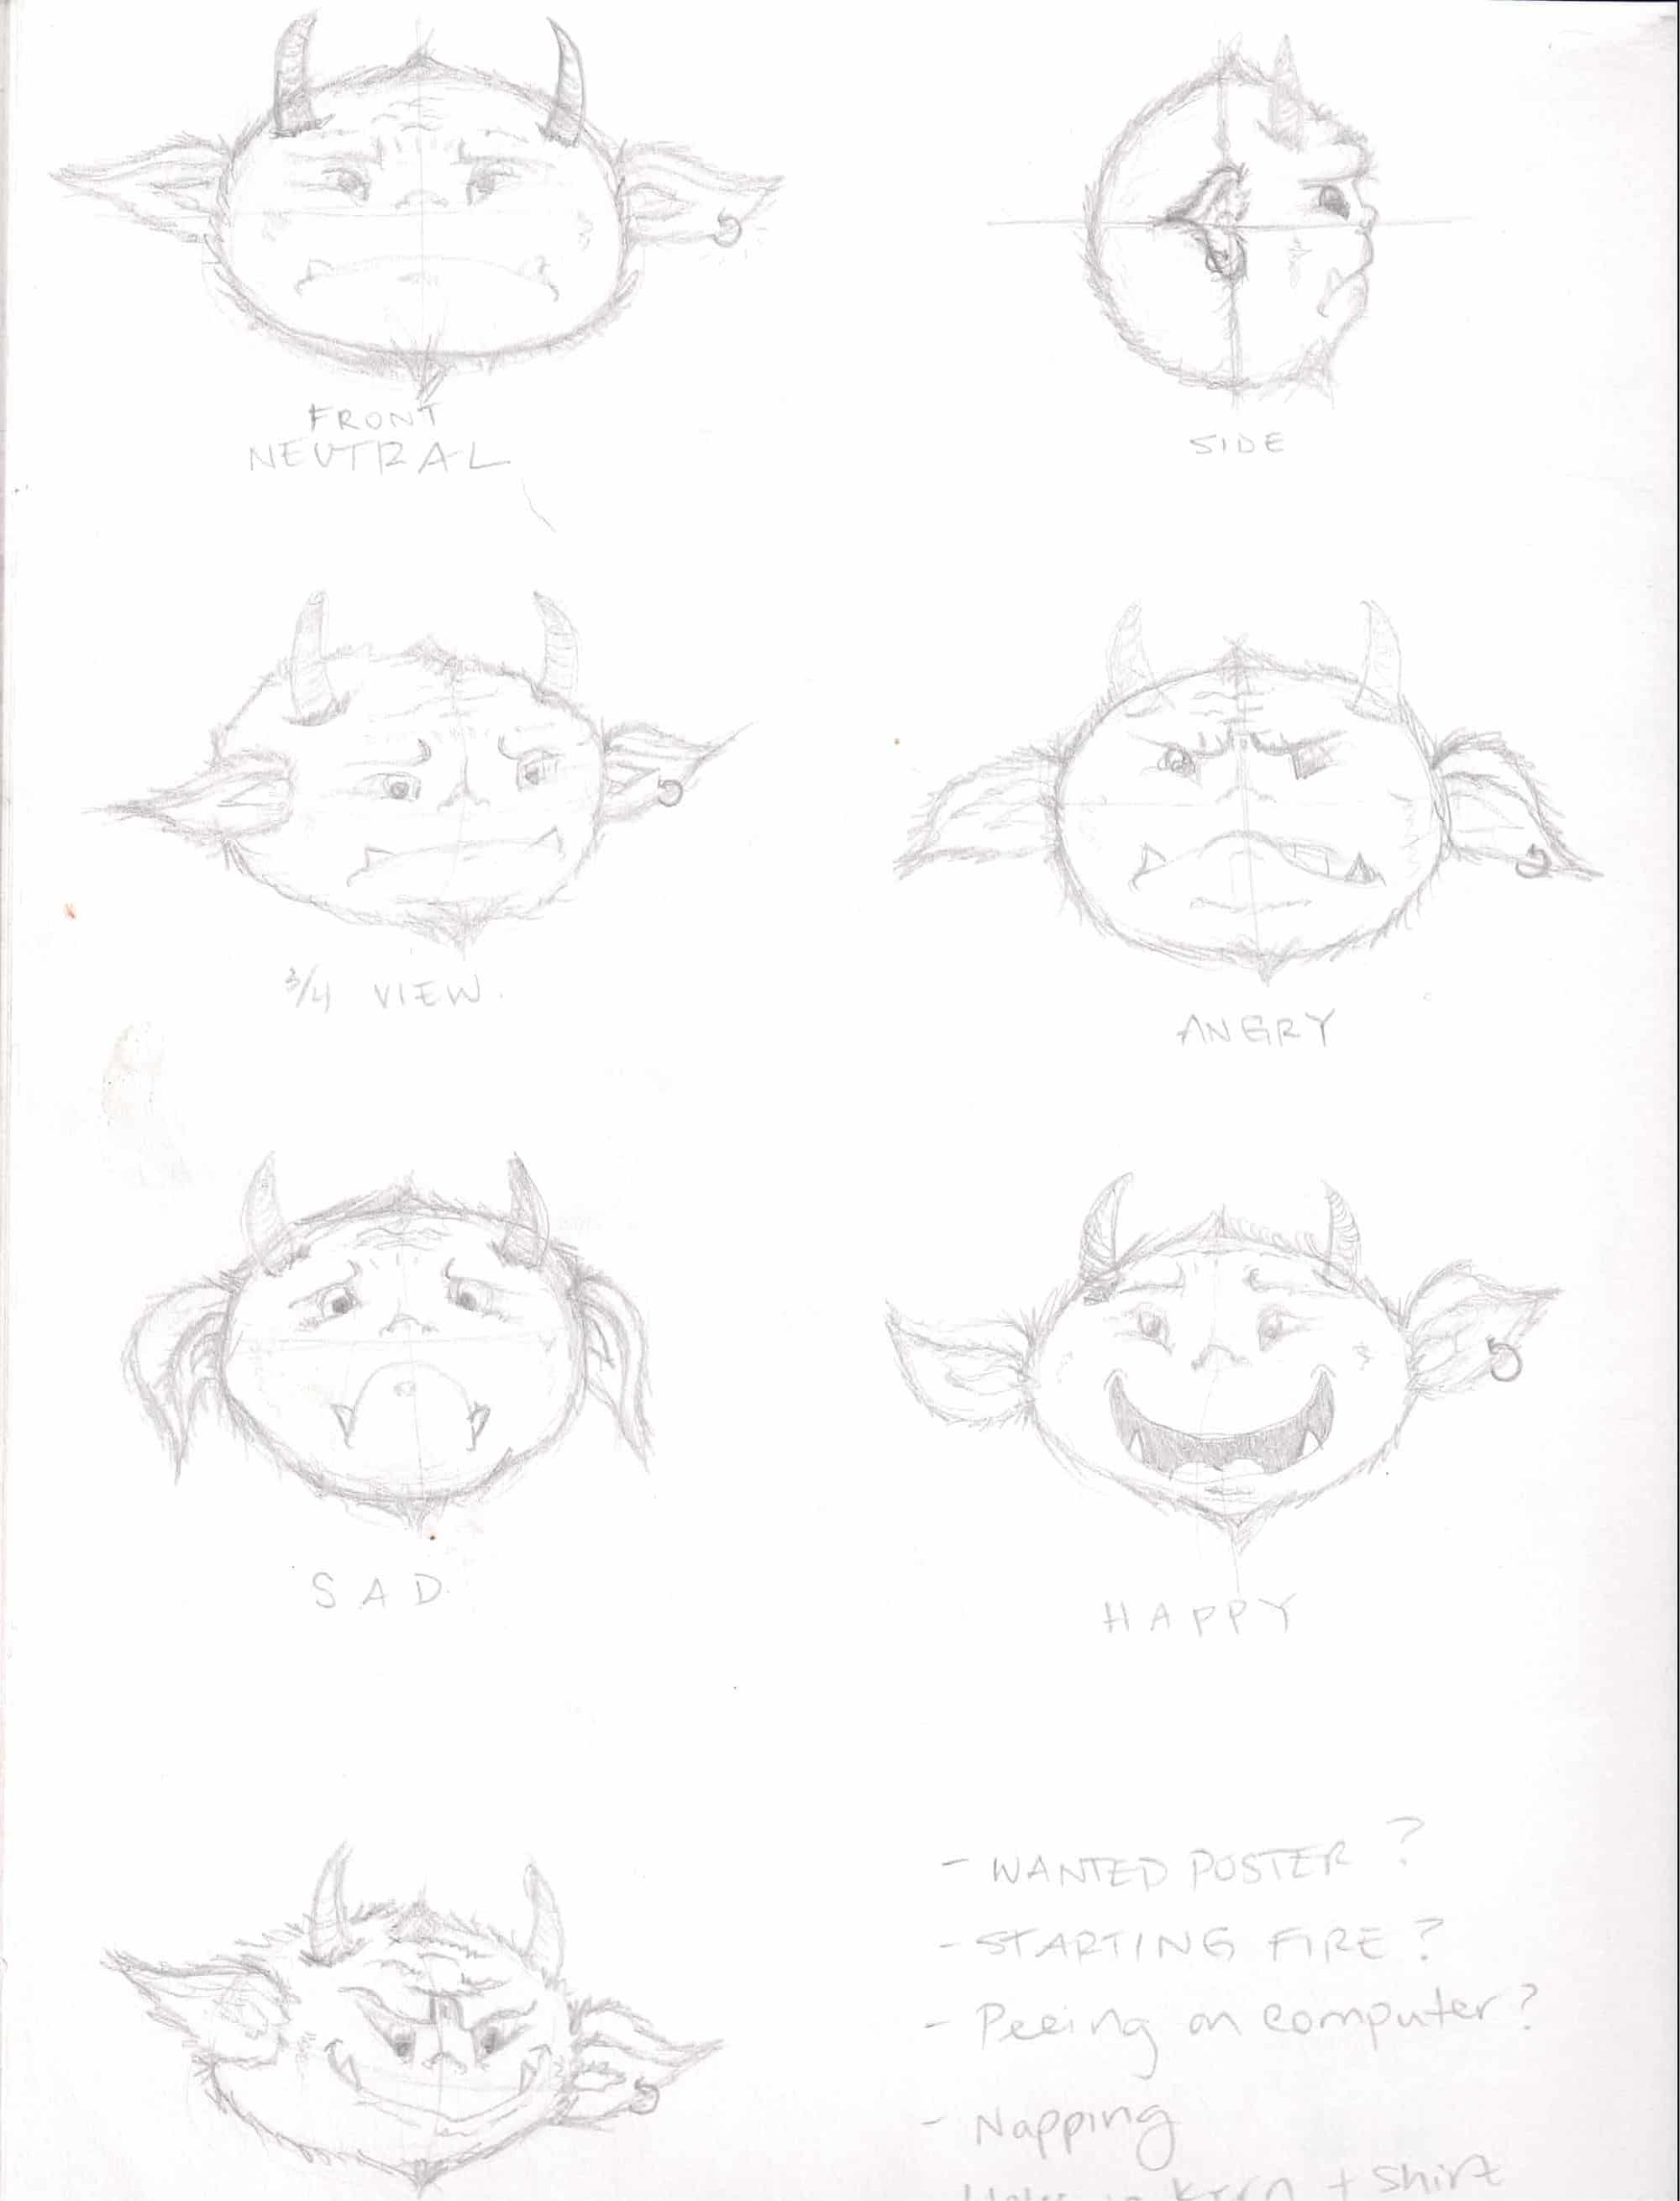 FRONT
NEUTRAL
SIDE
3/4 VIEW.
ANGRY
SAD
HAPPY
- WANTED POSTER ?
- STARTING FIRE ?
- Peeing on computer?
- Napping
+ shirt